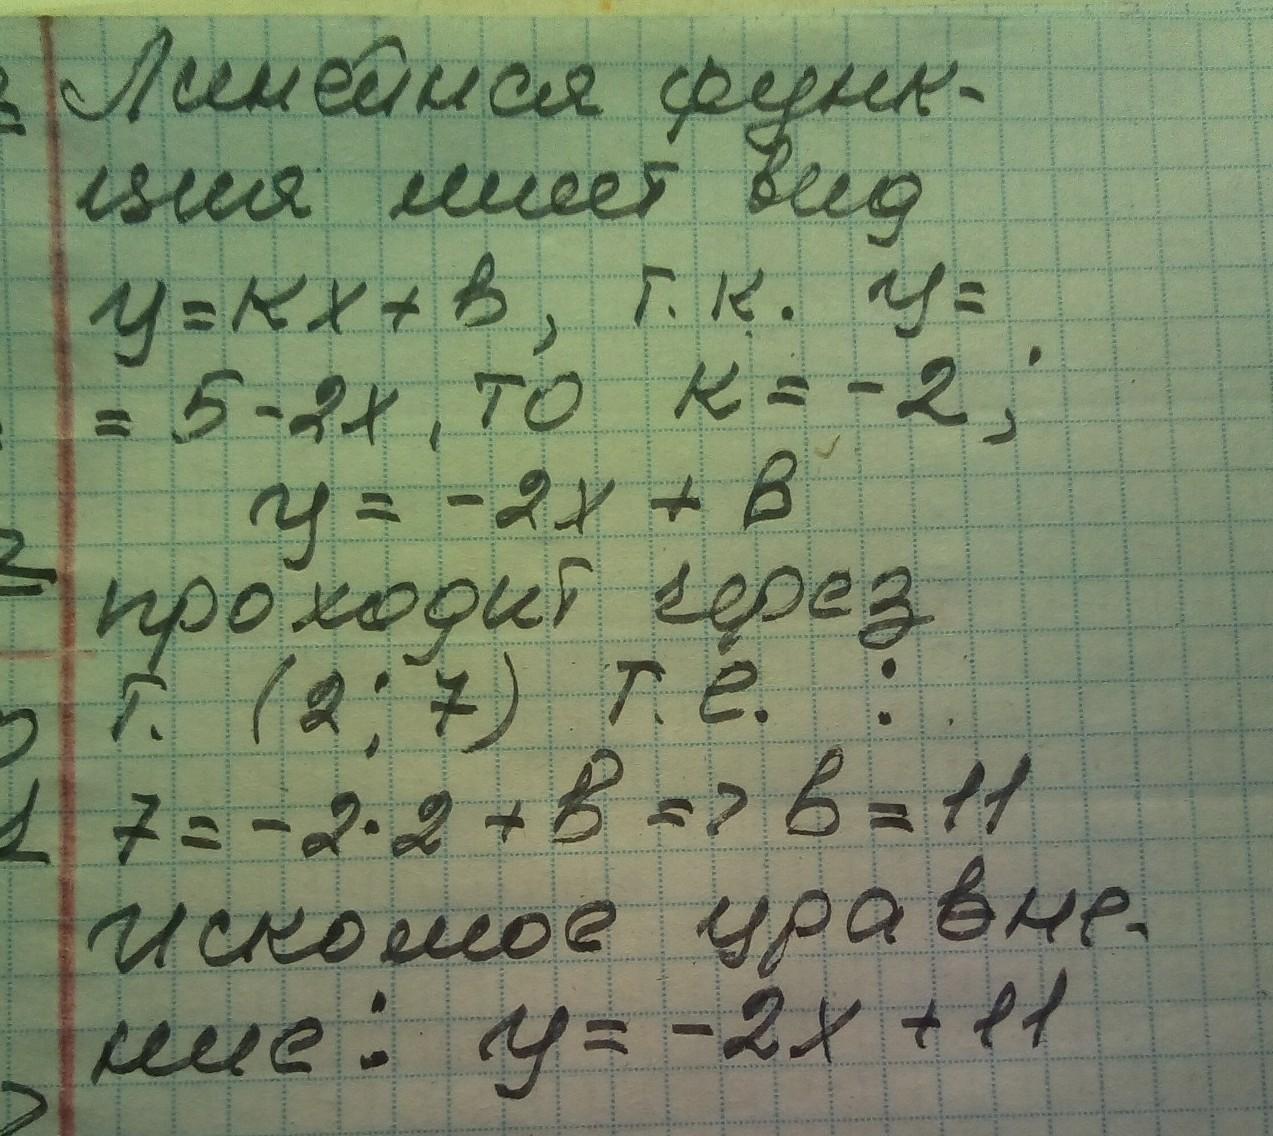 Линейная функ-
ция имеет вид
y = кx + в, т.к. y =
= 5 - 2x, то к = -2;
y = -2x + в
проходит через
т. (2; 7) т.е. :
7 = -2·2 + в => в = 11
Искомое уравне-
ние: y = -2x + 11